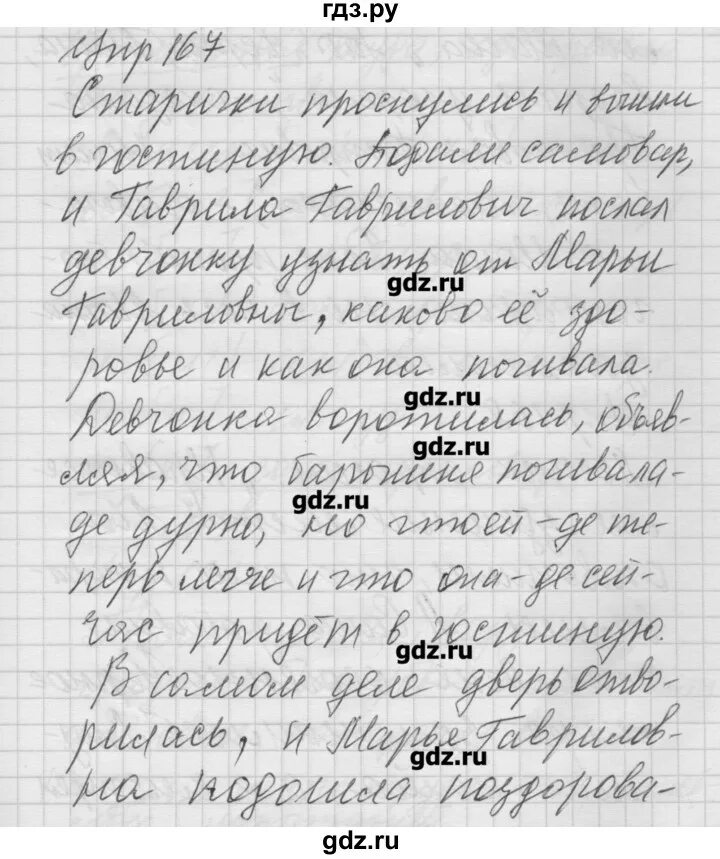 гдз.ру
Упр 167
Старички проснулись и вышли
в гостиную. Подали самовар,
и Гаврила Гаврилович послал
девчонку узнать от Марьи
gdz.ru
Гавриловны, каково её здо-
ровье и как она почивала.
gdz.ru
Девчонка воротилась, объяв-
gdz.ru
ляя, что барышня почивала-
gdz.ru
де дурно, но что ей-де те-
перь легче и что она-де сей-
час придёт в гостиную.
gdz.ru
В самом деле дверь отво-
рилась, и Марья Гаврилов-
gdz.ru
на подошла поздорова-
gdz.ru